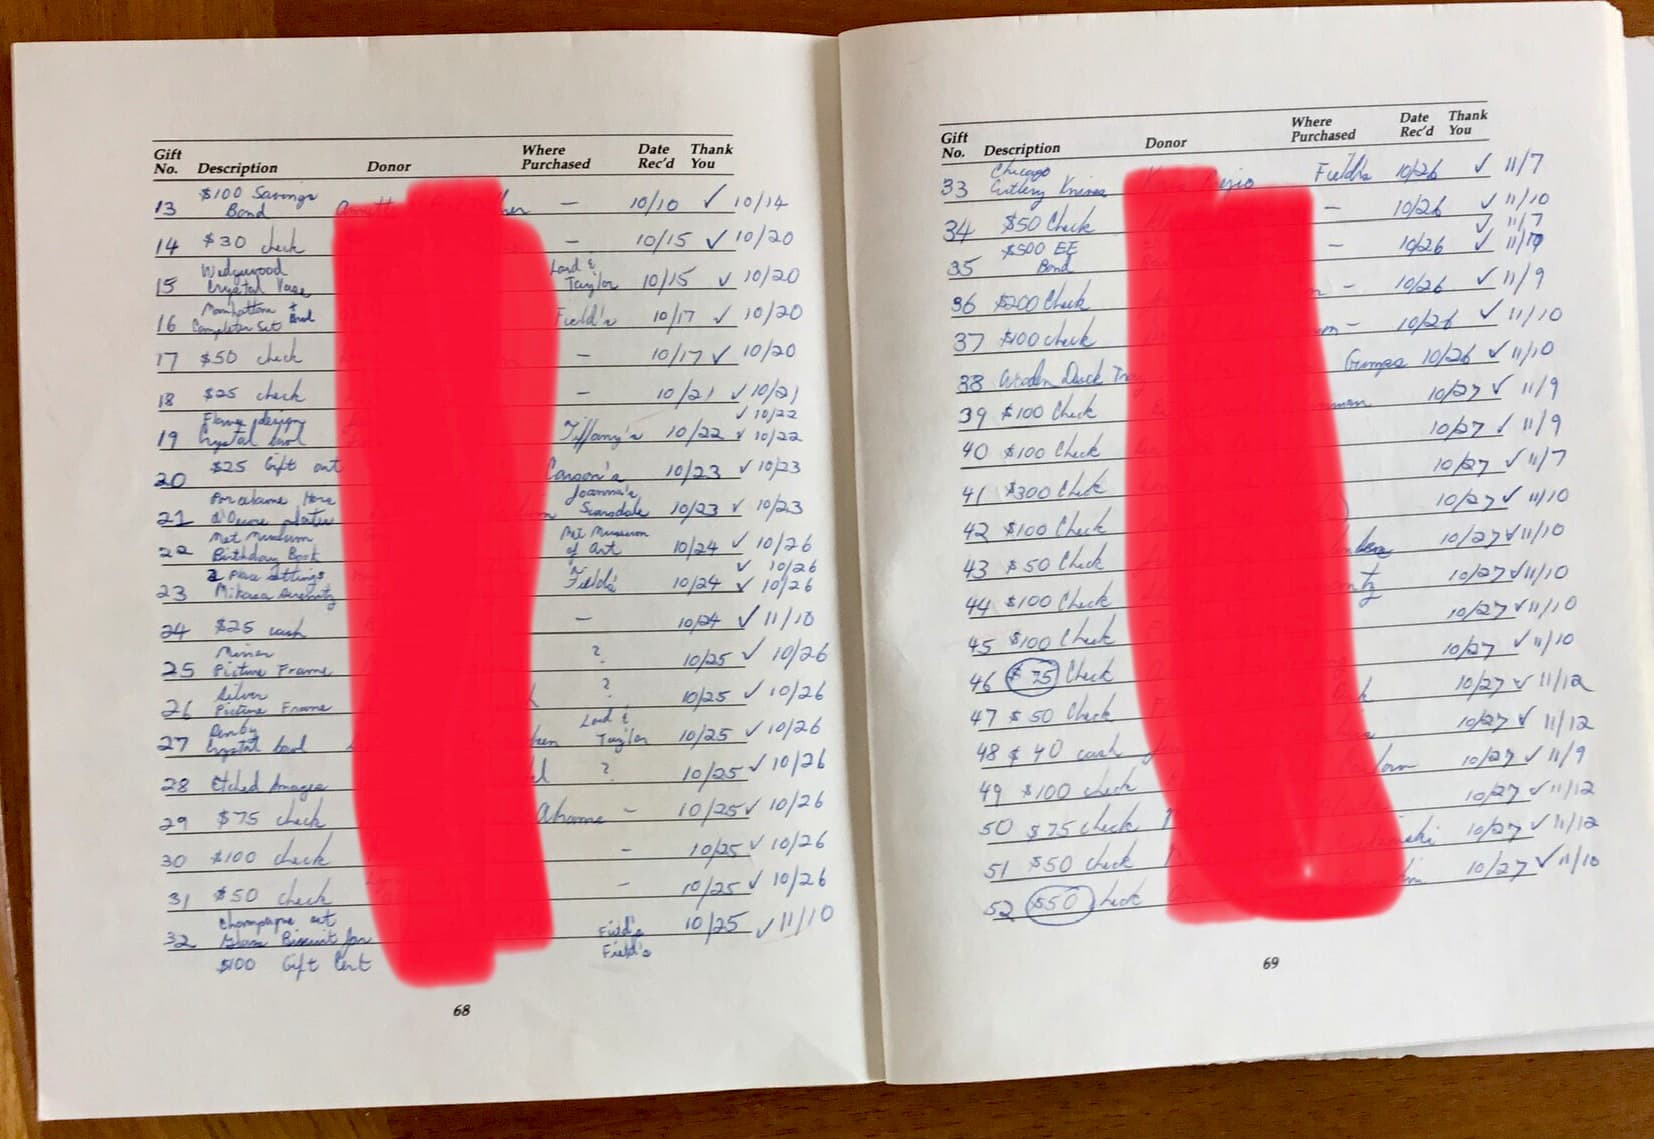 Gift No. Description Donor Where Purchased Date Rec'd Thank You
13 $100 Savings Bond — 10/10 ✓ 10/14
14 $30 check — 10/15 ✓ 10/20
15 Wedgwood Crystal Vase Lord & Taylor 10/15 ✓ 10/20
16 Completer Set Field's 10/17 ✓ 10/20
17 $50 check — 10/17 ✓ 10/20
18 $25 check — 10/21 ✓ 10/21
✓ 10/22
19 Flame design Crystal bowl Tiffany's 10/22 ✓ 10/22
20 $25 Gift Carson's 10/23 ✓ 10/23
21 Porcelaine Hors d'Oeuvre platter Joanna's Scarsdale 10/23 ✓ 10/23
22 Met Museum Birthday Book Met Museum of Art 10/24 ✓ 10/26
✓ 10/26
23 2 place settings Mikasa Field's 10/24 ✓ 10/26
24 $25 cash — 10/24 ✓ 11/10
25 Picture Frame ? 10/25 ✓ 10/26
26 Silver Picture Frame ? 10/25 ✓ 10/26
27 Crystal bowl Lord & Taylor 10/25 ✓ 10/26
28 Etched ? 10/25 ✓ 10/26
29 $75 check — 10/25 ✓ 10/26
30 $100 check — 10/25 ✓ 10/26
31 $50 check — 10/25 ✓ 10/26
32 Champagne set Glass Biscuit jar Field's 10/25 ✓ 11/10
$100 Gift Cert Field's
68
Gift No. Description Donor Where Purchased Date Rec'd Thank You
33 Chicago Cutlery Knives Field's 10/26 ✓ 11/7
34 $50 Check — 10/26 ✓ 11/10
✓ 11/7
35 $500 EE Bond — 10/26 ✓
36 $200 Check — 10/26 ✓ 11/9
37 $100 check — 10/26 ✓ 11/10
38 Wooden Duck Tray Gumps 10/26 ✓ 11/10
39 $100 Check 10/27 ✓ 11/9
40 $100 Check 10/27 ✓ 11/9
41 $300 Check 10/27 ✓ 11/7
42 $100 Check 10/27 ✓ 11/10
43 $50 Check 10/27 ✓ 11/10
44 $100 Check 10/27 ✓ 11/10
45 $100 Check 10/27 ✓ 11/10
46 $75 Check 10/27 ✓ 11/10
47 $50 Check 10/27 ✓ 11/12
48 $40 cash 10/27 ✓ 11/12
49 $100 check 10/27 ✓ 11/9
50 $75 check 10/27 ✓ 11/12
51 $50 check 10/27 ✓ 11/12
52 $50 check 10/27 ✓ 11/10
69